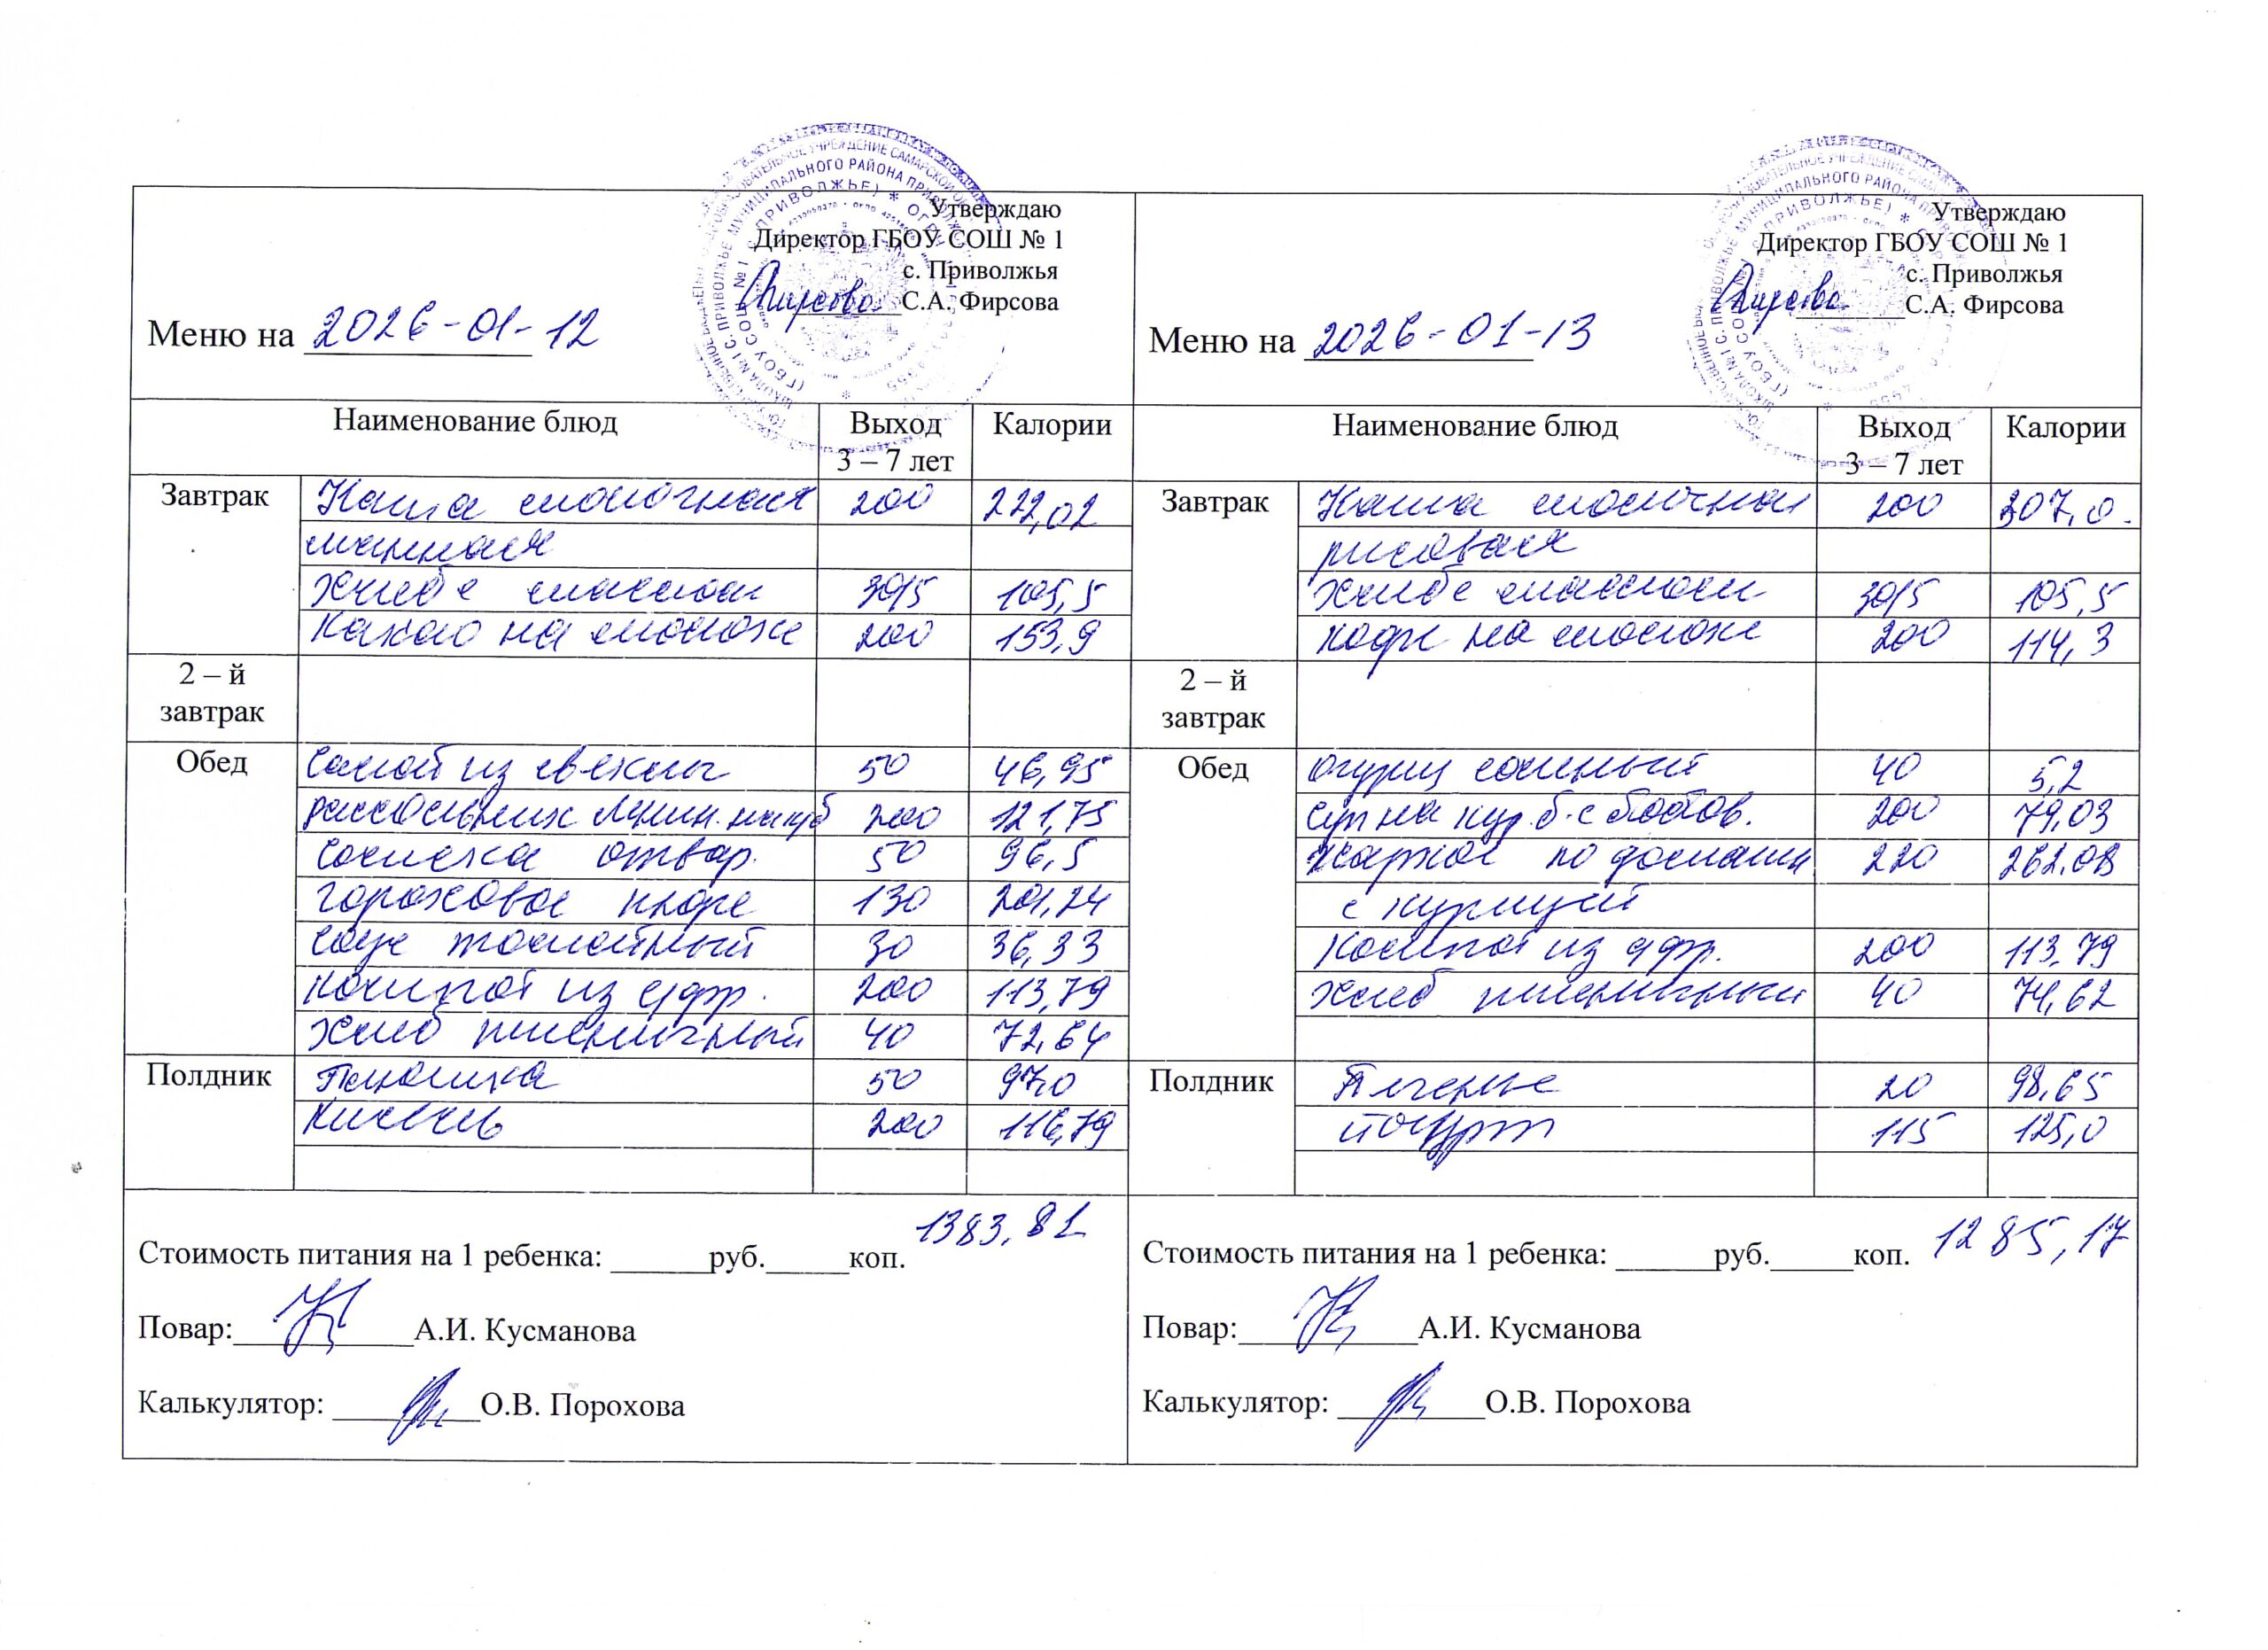 Утверждаю
Директор ГБОУ СОШ № 1
с. Приволжья
С.А. Фирсова
Меню на 2026-01-12
Наименование блюд Выход 3 – 7 лет Калории
Завтрак Каша молочная 200 222,02
манная
Хлеб с маслом 30/5 105,5
Какао на молоке 200 153,9
2 – й завтрак
Обед Салат из свеклы 50 46,95
рассольник Ленин. на к/б 200 121,75
сосиска отвар. 50 96,5
гороховое пюре 130 201,24
соус томатный 30 36,33
компот из с/фр. 200 113,79
Хлеб пшеничный 40 72,64
Полдник Плюшка 50 97,0
Кисель 200 116,79
Стоимость питания на 1 ребенка: руб. коп. 1383,81
Повар: А.И. Кусманова
Калькулятор: О.В. Порохова
Утверждаю
Директор ГБОУ СОШ № 1
с. Приволжья
С.А. Фирсова
Меню на 2026-01-13
Наименование блюд Выход 3 – 7 лет Калории
Завтрак Каша молочная 200 307,0.
рисовая
Хлеб с маслом 30/5 105,5
кофе на молоке 200 114,3
2 – й завтрак
Обед огурец соленый 40 5,2
суп на кур.б. с бобов. 200 79,03
жаркое по домашн 220 262,08
с курицей
компот из с/фр. 200 113,79
хлеб пшеничный 40 74,62
Полдник Печенье 20 98,65
йогурт 115 125,0
Стоимость питания на 1 ребенка: руб. коп. 1285,17
Повар: А.И. Кусманова
Калькулятор: О.В. Порохова